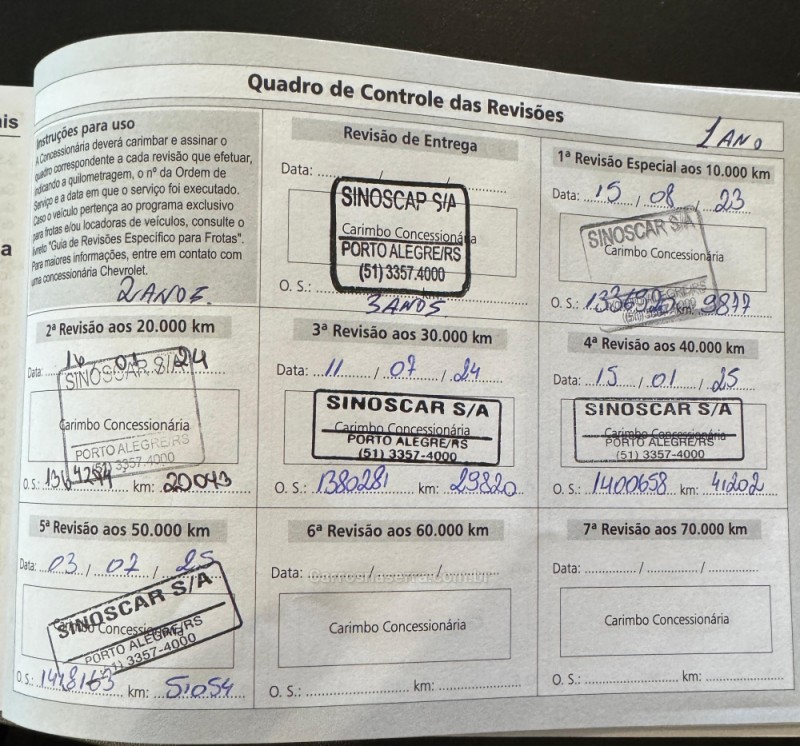 ais
a
Quadro de Controle das Revisões
Instruções para uso
A Concessionária deverá carimbar e assinar o
quadro correspondente a cada revisão que efetuar,
indicando a quilometragem, o nº da Ordem de
Serviço e a data em que o serviço foi executado.
Caso o veículo pertença ao programa exclusivo
para frotas e/ou locadoras de veículos, consulte o
livreto "Guia de Revisões Específico para Frotas".
Para maiores informações, entre em contato com
uma concessionária Chevrolet.
Revisão de Entrega
Data: / /
SINOSCAP S/A
Carimbo Concessionária
PORTO ALEGRE/RS
(51) 3357.4000
O. S.:
1 ANO
1ª Revisão Especial aos 10.000 km
Data: 15 / 08 / 23
SINOSCAR S/A
Carimbo Concessionária
PORTO ALEGRE/RS
O. S.: km: 9877
2 ANOS.
2ª Revisão aos 20.000 km
Data: 24
SINOSCAR S/A
Carimbo Concessionária
PORTO ALEGRE/RS
(51) 3357-4000
O. S.: km: 20043
3 ANOS
3ª Revisão aos 30.000 km
Data: 11 / 07 / 24
SINOSCAR S/A
Carimbo Concessionária
PORTO ALEGRE/RS
(51) 3357-4000
O. S.: 1380281 km: 29820
4ª Revisão aos 40.000 km
Data: 15 / 01 / 25
SINOSCAR S/A
Carimbo Concessionária
PORTO ALEGRE/RS
(51) 3357-4000
O. S.: 1400658 km: 41202
5ª Revisão aos 50.000 km
Data: 03 / 07 / 25
SINOSCAR S/A
Carimbo Concessionária
PORTO ALEGRE/RS
(51) 3357-4000
O. S.: 1418163 km: 51054
6ª Revisão aos 60.000 km
Data: / /
carrosnaserra.com.br
Carimbo Concessionária
O. S.: km:
7ª Revisão aos 70.000 km
Data: / /
Carimbo Concessionária
O. S.: km: